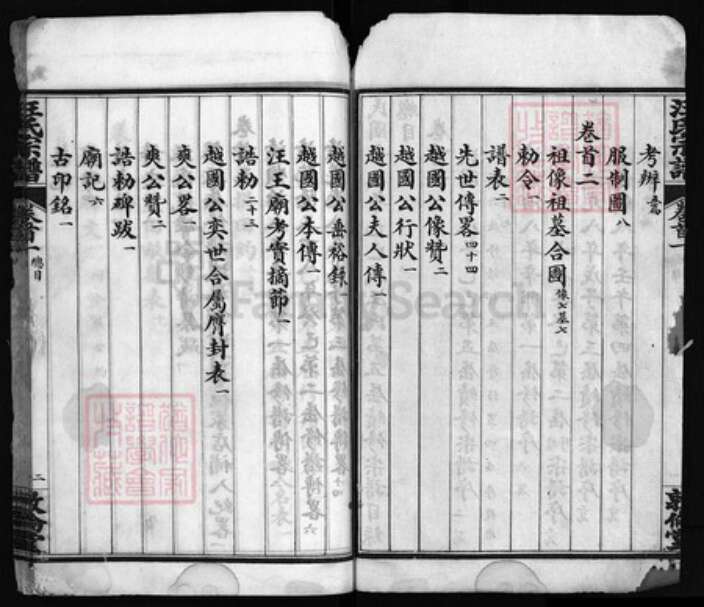 汪氏宗譜
考辨
服制圖 八
卷首二
祖像祖墓合圖 像七墓七
勅令 一
譜表 二
先世傳畧 四十四
越國公像贊 二
越國公行狀 一
越國公夫人傳 一
越國公垂裕錄 一
越國公本傳 一
汪王廟考實摘節 一
誥勅 二十三
越國公奕世合屬膺封表 一
爽公畧 一
爽公贊 二
誥勅碑跋 一
廟記 六
古印銘 一
汪氏宗譜
卷首一
總目
二
FamilySearch